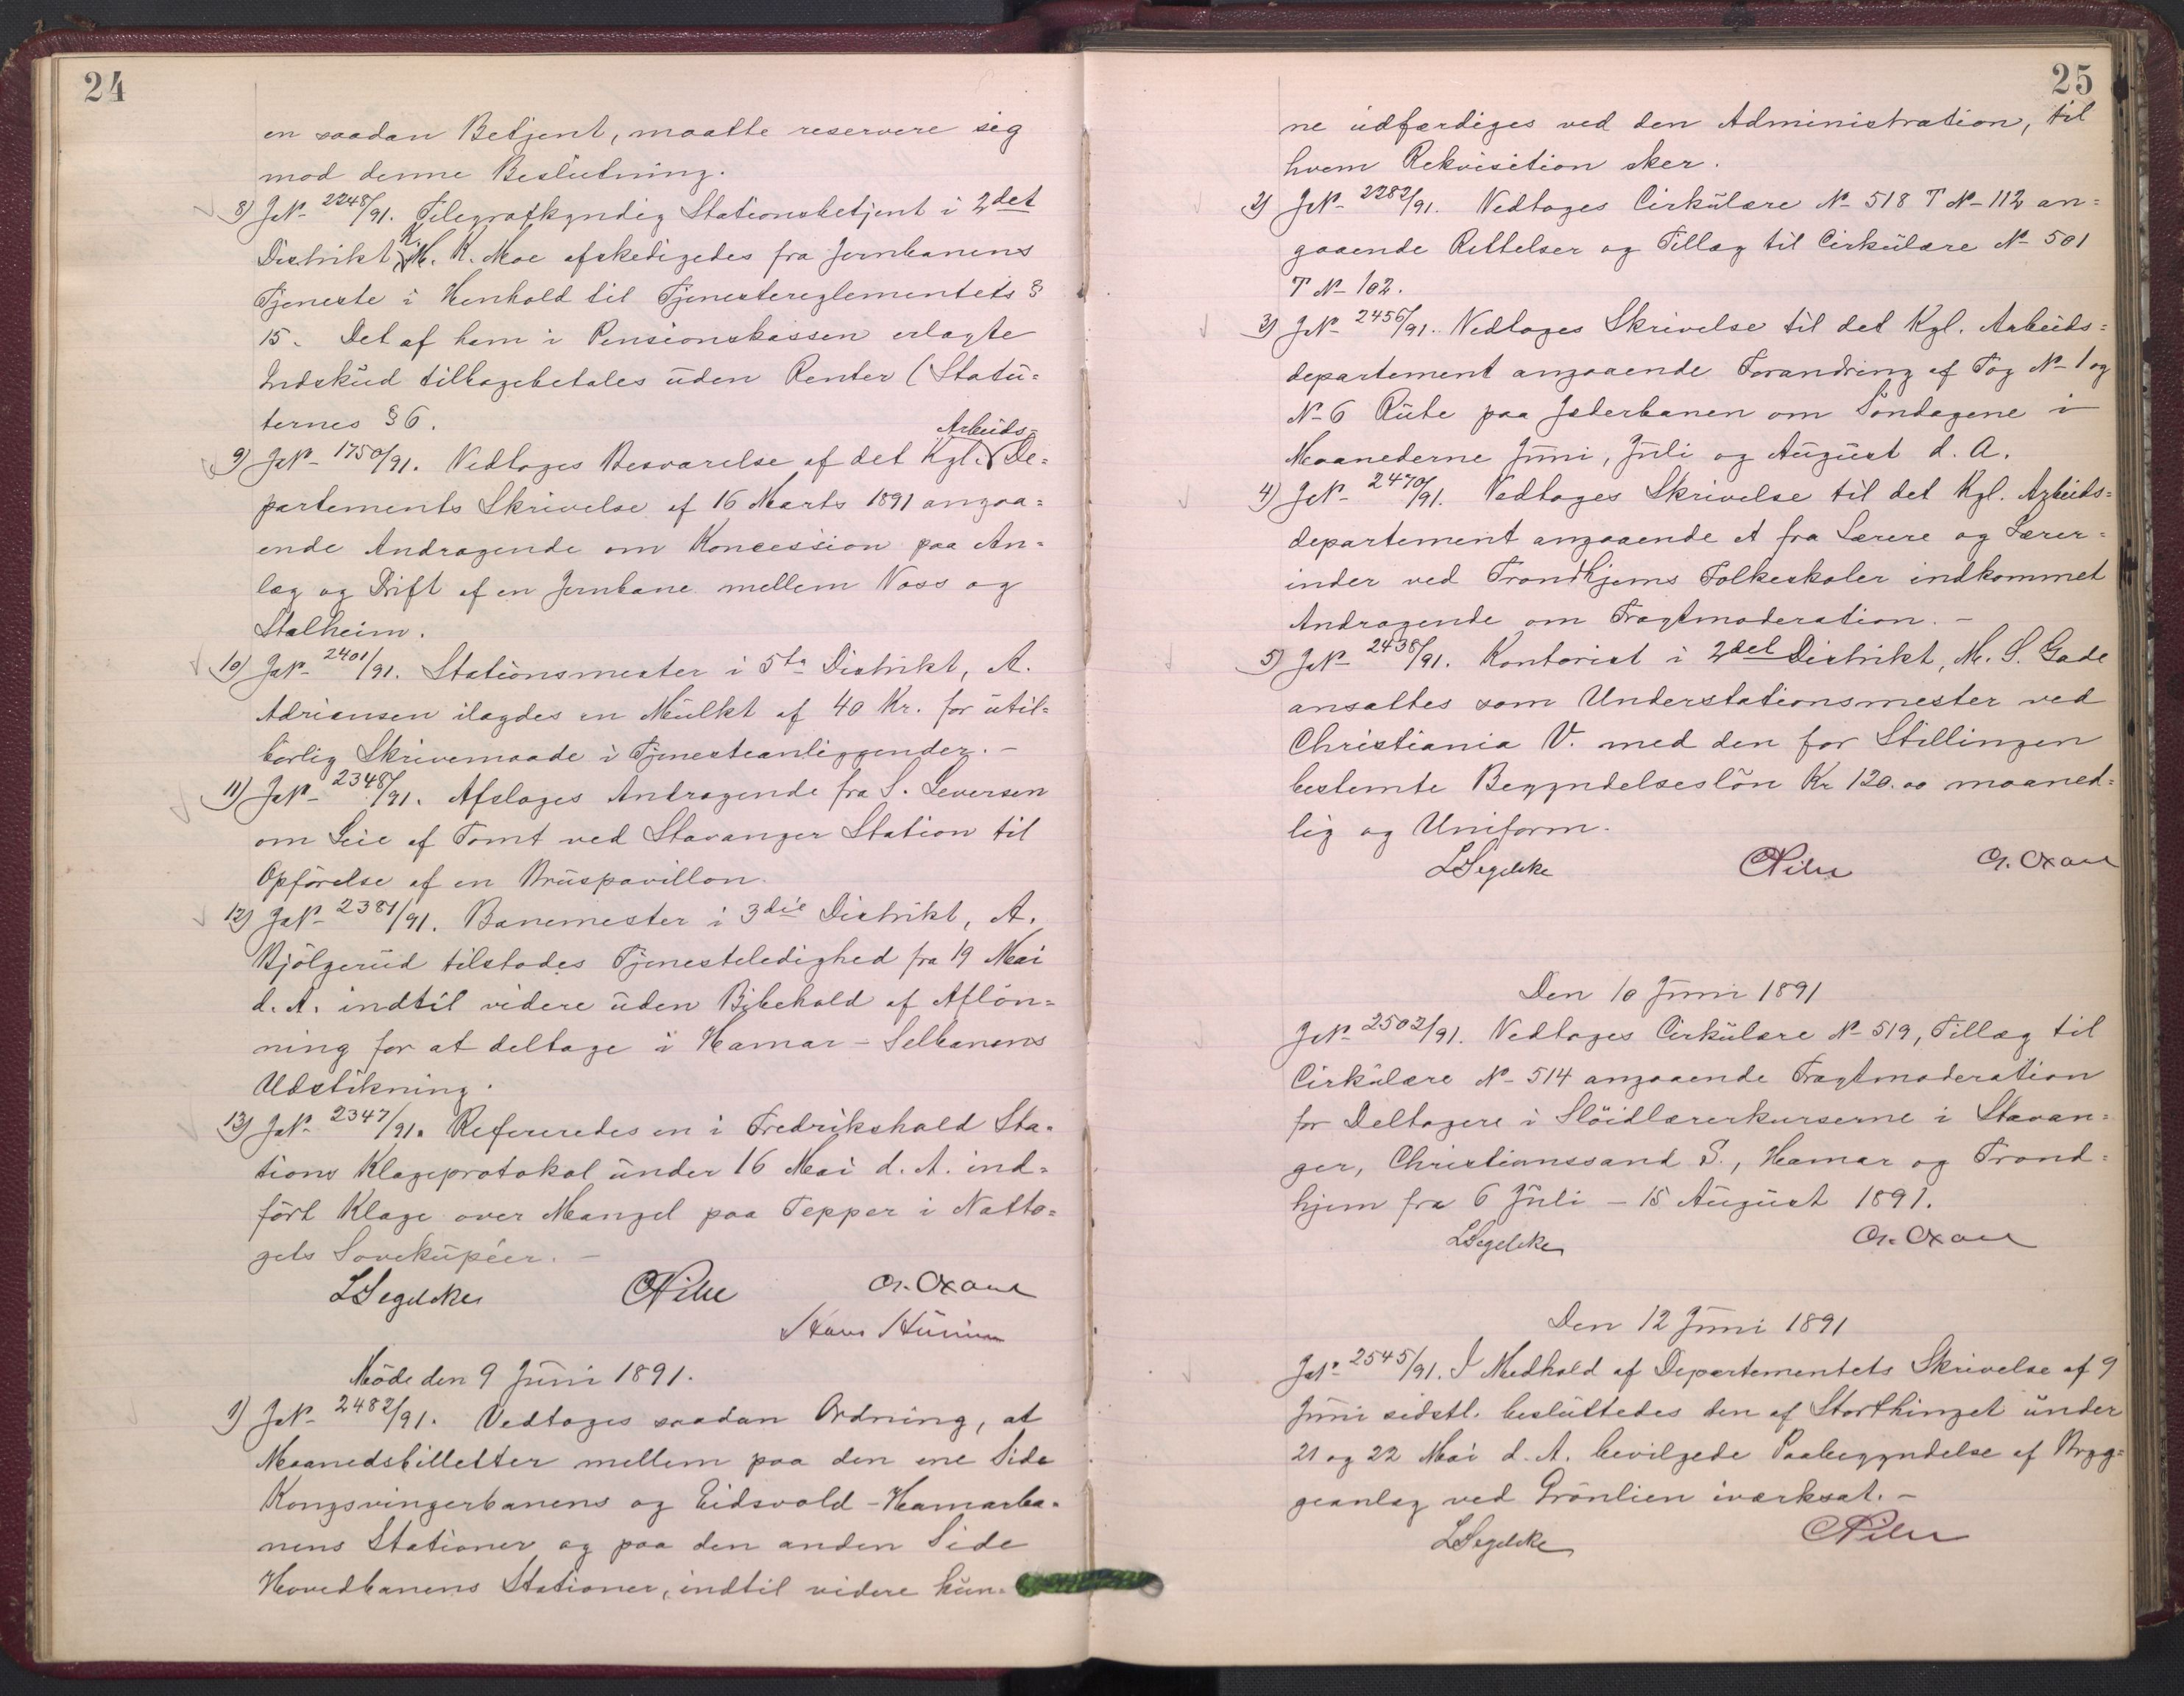 24
en saadan Betjent, maatte reservere sig
mod denne Beslutning.
8) JN 2248/91. Telegrafkyndig Stationsbetjent i 2det
Distrikt K. M. K. Moe afskedigedes fra Jernbanens
Tjeneste i Henhold til Tjenestereglementets §
15. Det af ham i Pensionskassen erlagte
Indskud tilbagebetales uden Renter (Statu=
ternes § 6.
9) JN 1750/91. Vedtoges Besvarelse af det Kgl. Arbeids= De=
partements Skrivelse af 16 Marts 1891 angaa=
ende Andragende om Koncession paa An=
læg og Drift af en Jernbane mellem Voss og
Stalheim.
10) JN 2401/91. Stationsmester i 5te Distrikt, A.
Adriansen ilagdes en Mulkt af 40 Kr. for util=
börlig Skrivemaade i Tjenesteanliggender. –
11) JN 2348/91. Afsloges Andragende fra S. Seversen
om Leie af Tomt ved Stavanger Station til
Opförelse af en Bruspavillon.
12) JN 2381/91. Banemester i 3die Distrikt, A.
Bjölgerud tilstodes Tjenesteledighed fra 19 Mai
d. A. indtil videre uden Bibehold af Aflön=
ning for at deltage i Hamar-Selbanens
Udstikning.
13) JN 2347/91. Refereredes en i Fredrikshald Sta=
tions Klageprotokol under 16 Mai d. A. ind=
fört Klage over Mangel paa Tepper i Natto=
gets Sovekupéer. –
L Segelcke CPihl Chr. Oxaal
Möde den 9 Juni 1891.
1) JN 2482/91. Vedtoges saadan Ordning, at
Maanedsbilletter mellem paa den ene Side
Kongsvingerbanens og Eidsvold-Hamarba=
nens Stationer og paa den anden Side
Hovedbanens Stationer, indtil videre kun=
25
ne udfærdiges ved den Administration, til
hvem Rekvisition sker.
2) JN 2282/91. Vedtoges Cirkulære N 518 T N 112 an=
gaaende Rettelser og Tillæg til Cirkulære N 501
T N 102.
3) JN 2456/91. Vedtoges Skrivelse til det Kgl. Arbeids=
departement angaaende Forandring af Tog N 1 og
N 6 Rute paa Jæderbanen om Söndagene i
Maanederne Juni, Juli og August d. A.
4) JN 2470/91. Vedtoges Skrivelse til det Kgl. Arbeids=
departement angaaende et fra Lærere og Lærer=
inder ved Trondhjems Folkeskoler indkommet
Andragende om Fragtmoderation. –
5) JN 2438/91. Kontorist i 2det Distrikt, M. S. Gade
ansattes som Understationsmester ved
Christiania V. med den for Stillingen
bestemte Begyndelseslön Kr 120.00 maaned=
lig og Uniform.
L Segelcke CPihl Chr. Oxaal
Den 10 Juni 1891
JN 2502/91. Vedtoges Cirkulære N 519, Tillæg til
Cirkulære N 514 angaaende Fragtmoderation
for Deltagere i Slöidlærerkurserne i Stavan=
ger, Christianssand S., Hamar og Trond=
hjem fra 6 Juli – 15 August 1891.
L Segelcke Chr. Oxaal
Den 12 Juni 1891
JN 2545/91. I Medhold af Departementets Skrivelse af 9
Juni sidstl. besluttedes den af Storthinget under
21 og 22 Mai d. A. bevilgede Paabegyndelse af Bryg=
geanlæg ved Grönlien iværksat. –
L Segelcke CPihl